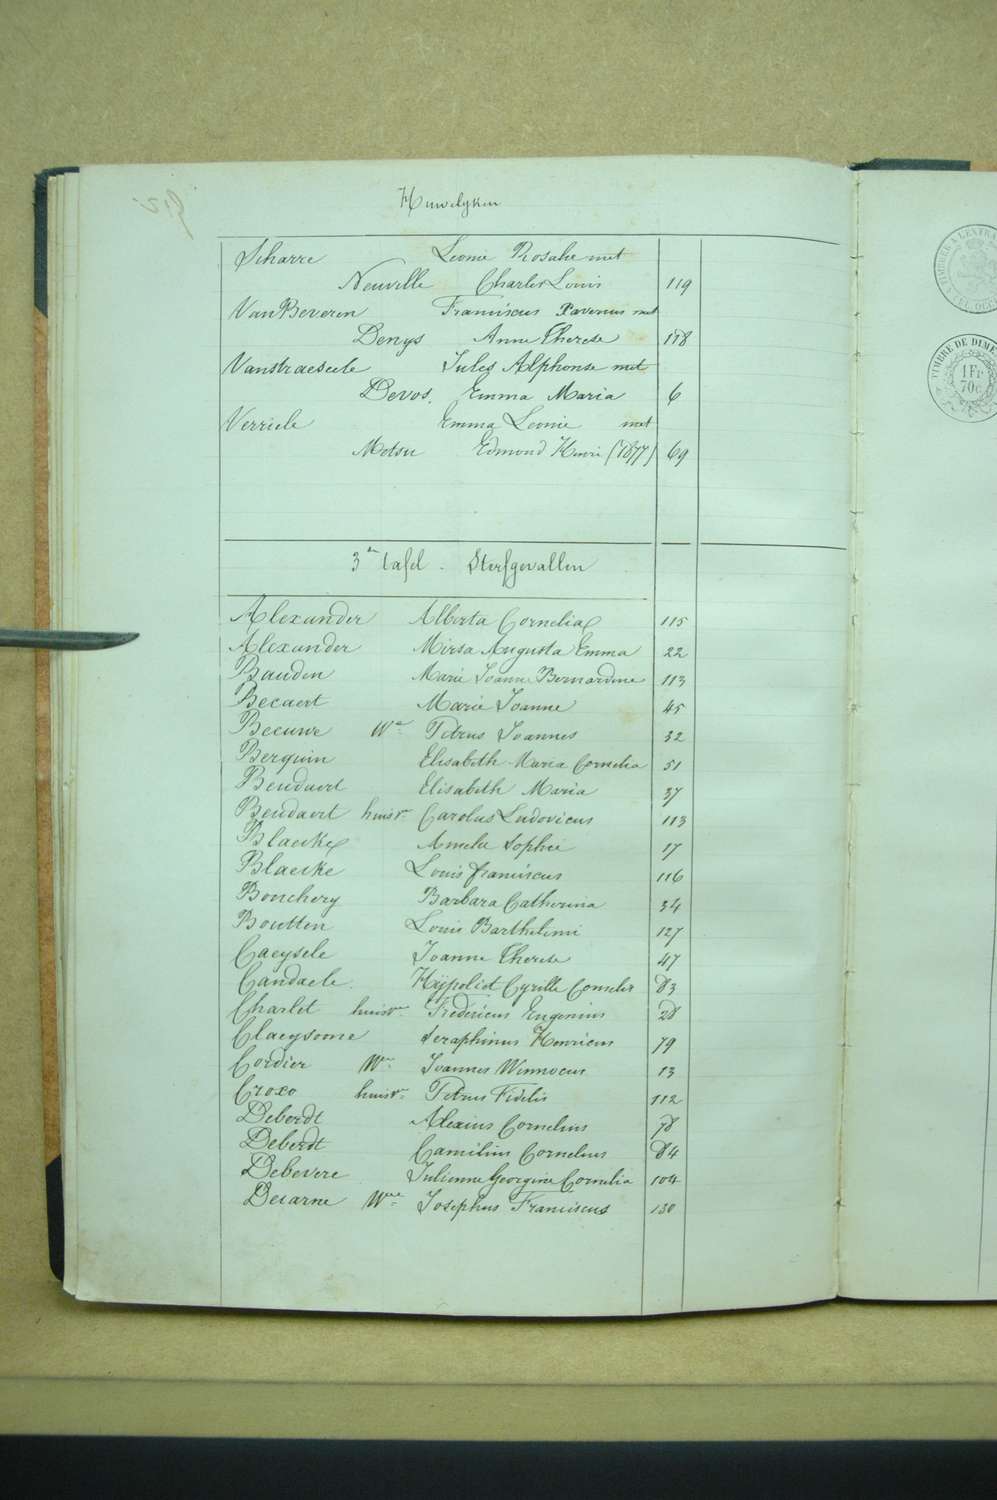 Huwelyken
Scharre Leonie Rosalie met
Neuville Charles Louis 119
VanBeveren Franciscus Xaverius met
Denys Anne Therese 118
Vanstraeseele Jules Alphonse met
Devos, Emma Maria 6
Verriele Emma Leonie met
Motsu Edmond Henri (1877) 69
3e tafel. Sterfgevallen
Alexander Alberta Cornelia 115
Alexander Mirsa Augusta Emma 22
Bauden Marie Joanne Bernardine 113
Becaert Marie Joanne 45
Beeuwe We Petrus Joannes 32
Berquin Elisabeth Maria Cornelia 51
Beudaert Elisabeth Maria 37
Beudaert huisv. Carolus Ludovicus 113
Blaecke Amelie Sophie 17
Blaecke Louis franciscus 116
Bonchery Barbara Catherina 34
Boutten Louis Barthelemi 127
Caeysele Joanne Therese 47
Candaele. Hÿpoliet Cyrille Cornelis 83
Charlet huisve Fredericus Eugenius 28
Claeysoone Seraphinus Henricus 79
Cordier We Joannes Winnocus 13
Croxo huisv. Petrus Fidelis 112
Deberdt Alexius Cornelius 78
Deberdt Camilius Cornelius 84
Debevere Julienne Georgine Cornelia 104
Decarne Wwe Josephus Franciscus 130
TIMBRE DE DIME
1 Fr
70c